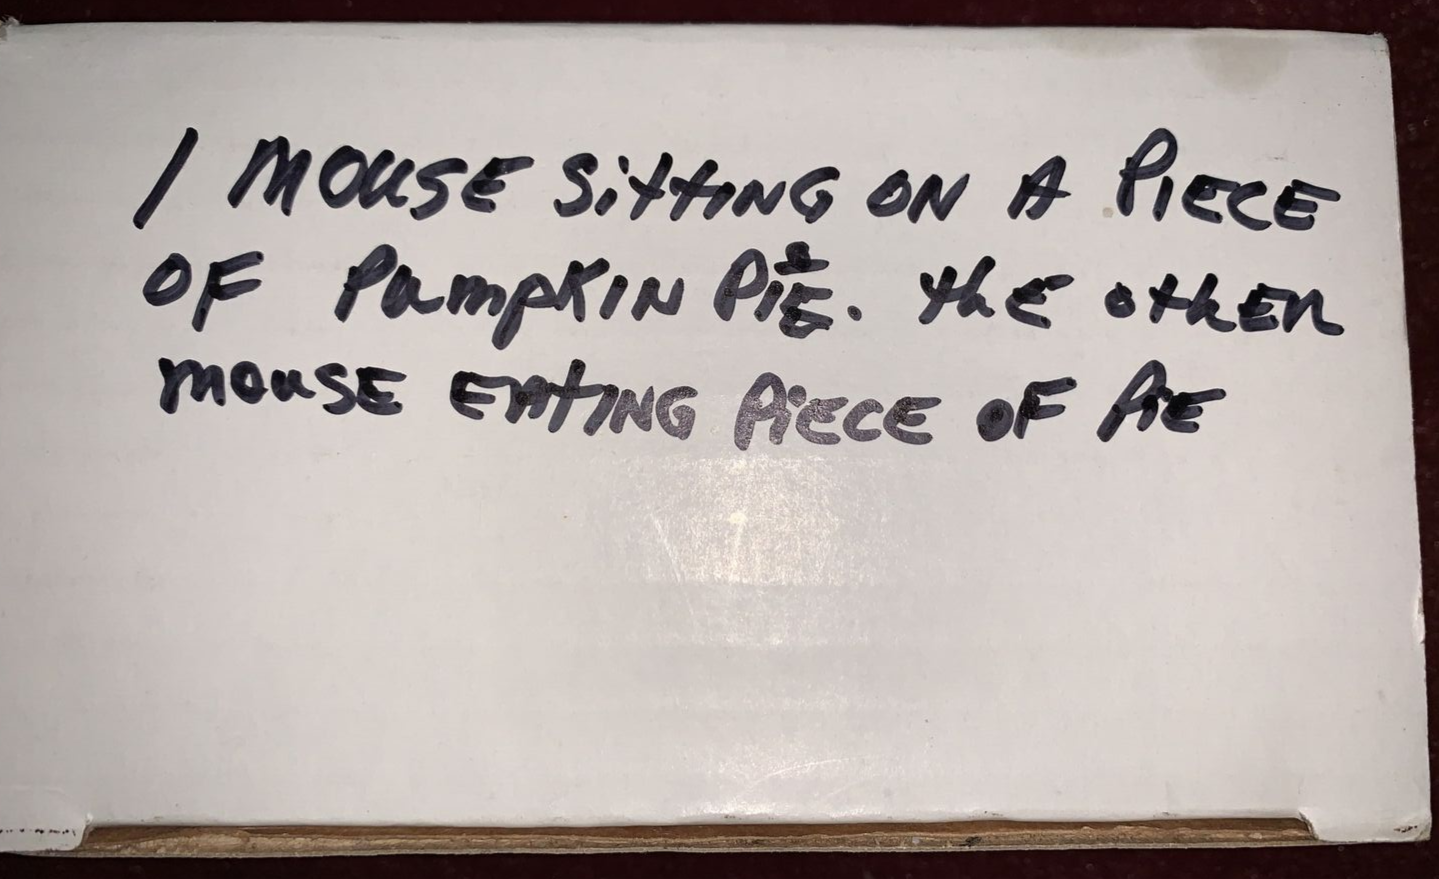 1 MOUSE SittING ON A PIECE
OF PumpKIN PIE. the otheR
mouSE EAtING PiECE OF PIE